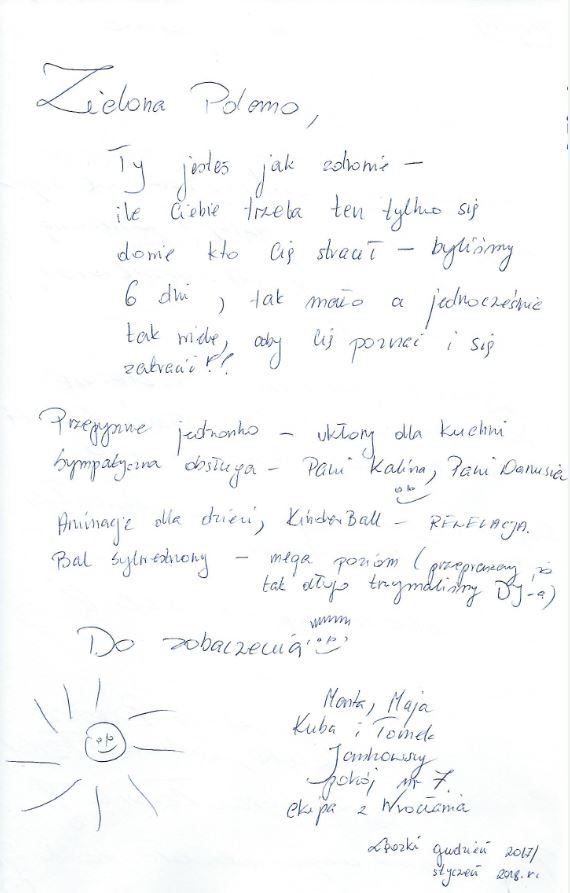 Zielona Polano,
Ty jesteś jak zdrowie –
ile Ciebie trzeba ten tylko się
dowie kto Cię stracił – byliśmy
6 dni, tak mało a jednocześnie
tak wiele, aby Cię poznać i się
zatracić!!
Przepyszne jedzonko – ukłony dla kuchni
Sympatyczna obsługa – Pani Kalina, Pani Danusia
Animacje dla dzieci, KinderBall – REWELACJA.
Bal sylwestrowy – mega poziom (przepraszamy, że
tak długo trzymaliśmy DJ-a)
Do zobaczenia
Marta, Maja
Kuba i Tomek
pokój nr 7.
ekipa z Wrocławia
grudzień 2017/
styczeń 2018 r.